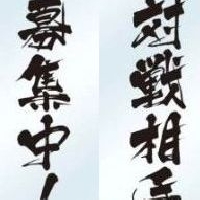 対戦相手
募集中!